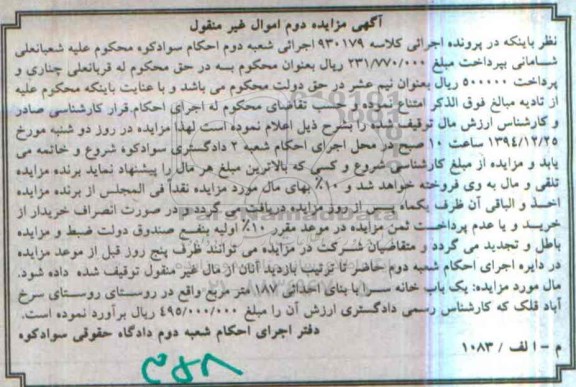 آگهی مزایده دوم اموال غیر منقول
نظر باینکه در پرونده اجرائی کلاسه ۹۳۰۱۷۹ اجرائی شعبه دوم احکام سوادکوه محکوم علیه شعبانعلی
شسامانی بپرداخت مبلغ ۲۳۱/۷۷۰/۰۰۰ ریال بعنوان محکوم بسه در حق محکوم له قربانعلی چناری و
پرداخت ۵۰۰۰۰۰ ریال بعنوان نیم عشر در حق دولت محکوم می باشد و با عنایت باینکه محکوم علیه
از تادیه مبالغ فوق الذکر امتناع نموده و حسب تقاضای محکوم له اجرای احکام.قرار کارشناسی صادر
و کارشناس ارزش مال توقیف شده را بشرح ذیل اعلام نموده است لهذا مزایده در روز دو شنبه مورخ
۱۳۹۴/۱۲/۲۵ ساعت ۱۰ صبح در محل اجرای احکام شعبه ۲ دادگستری سوادکوه شروع و خاتمه می
یابد و مزایده از مبلغ کارشناسی شروع و کسی که بالاترین مبلغ هر مال را پیشنهاد نماید برنده مزایده
تلقی و مال به وی فروخته خواهد شد و ۱۰٪ بهای مال مورد مزایده نقداً فی المجلس از برنده مزایده
اخذ و الباقی آن ظرف یکماه پس از روز مزایده دریافت می گردد و در صورت انصراف خریدار از
خرید و یا عدم پرداخت ثمن مزایده در موعد مقرر ۱۰٪ اولیه بنفع صندوق دولت ضبط و مزایده
باطل و تجدید می گردد و متقاضیان شرکت در مزایده می توانند ظرف پنج روز قبل از موعد مزایده
در دایره اجرای احکام شعبه دوم حاضر تا ترتیب بازدید آنان از مال غیر منقول توقیف شده داده شود.
مال مورد مزایده: یک باب خانه سرا با بنای احداثی ۱۸۷ متر مربع واقع در روستای روستای سرخ
آباد قلک که کارشناس رسمی دادگستری ارزش آن را مبلغ ۴۹۵/۰۰۰/۰۰۰ ریال برآورد نموده است.
دفتر اجرای احکام شعبه دوم دادگاه حقوقی سوادکوه
م - الف / ۱۰۸۳